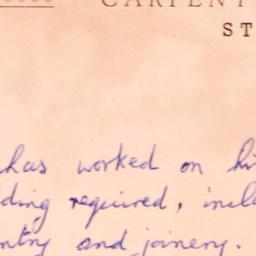 CARPENT
ST
has worked on hi
ding required, incl
ntry and joinery.